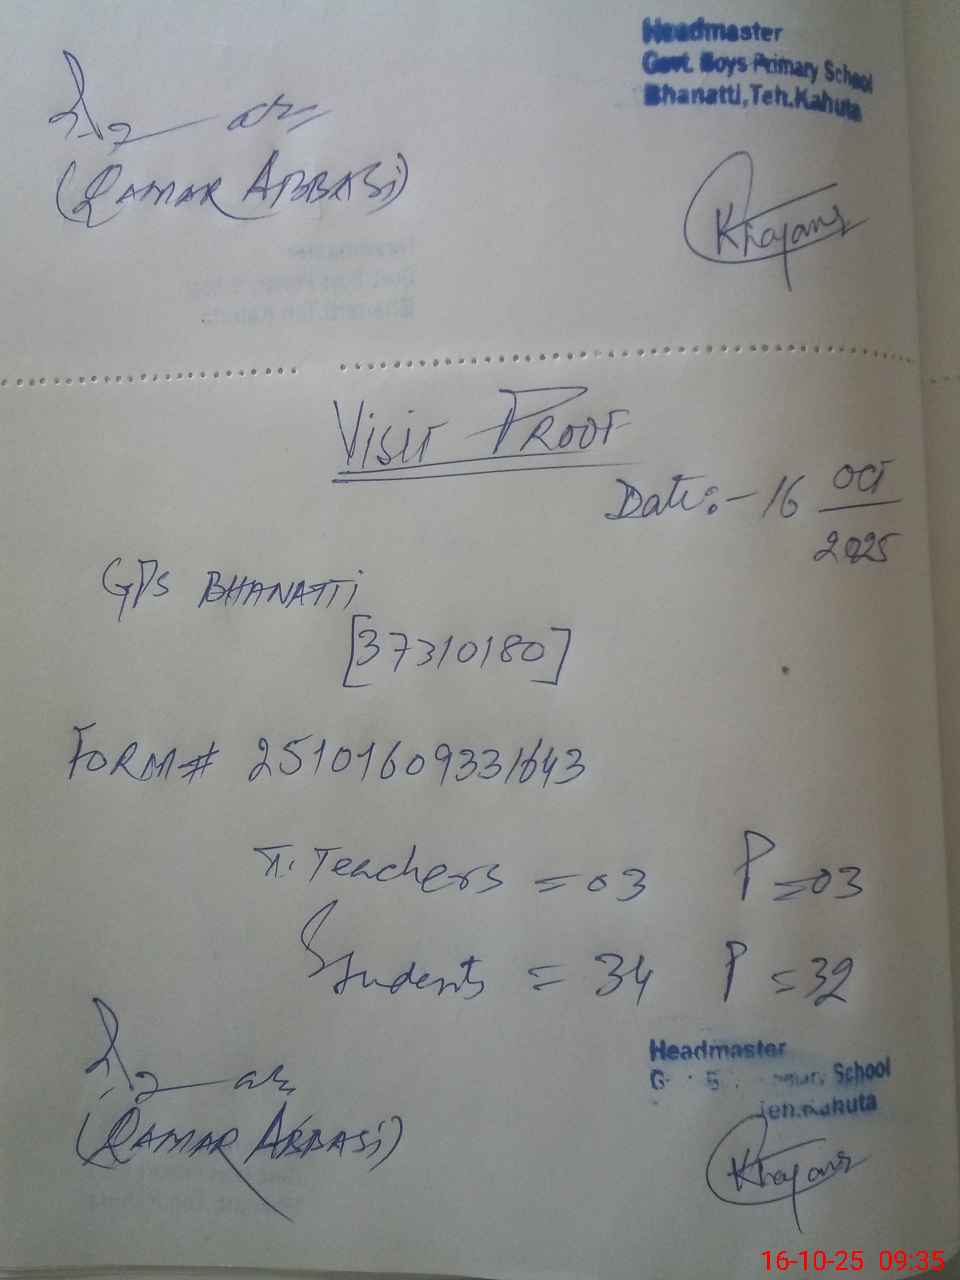 Headmaster
Govt. Boys Primary School
Bhanatti, Teh. Kahuta
(QAMAR ABBASi)
Khajans
VISIT PROOF
Date:- 16 OCT
2025
GPS BHANATTi
[37310180]
FORM# 25101609331643
T. Teachers = 03 P = 03
Students = 34 P = 32
Headmaster
School
Teh. Kahuta
(QAMAR ABBASi)
16-10-25 09:35